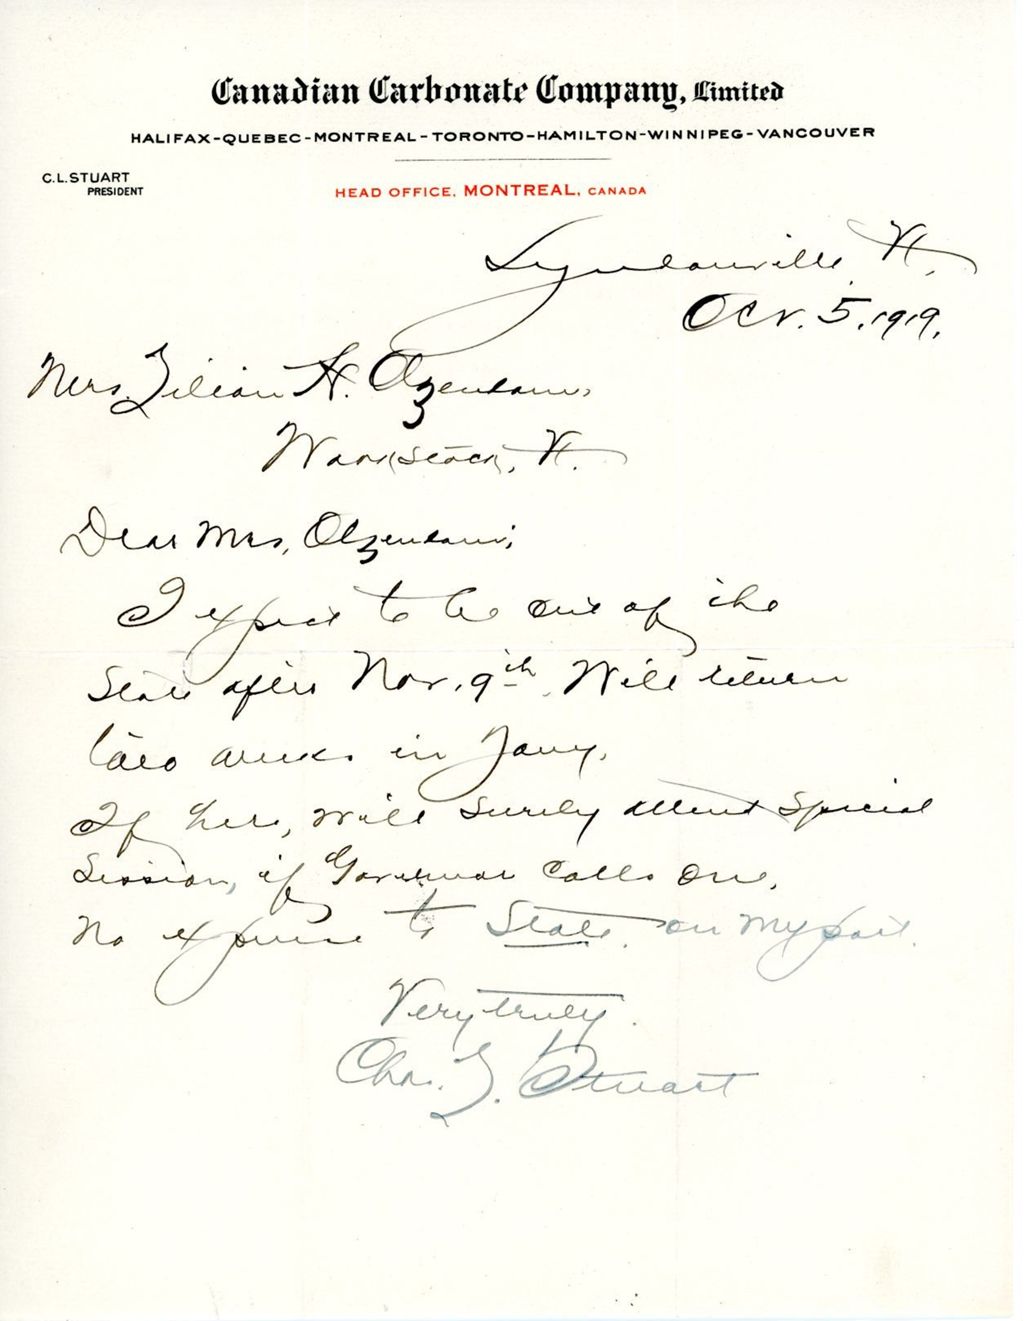 Canadian Carbonate Company, Limited
HALIFAX-QUEBEC-MONTREAL-TORONTO-HAMILTON-WINNIPEG-VANCOUVER
C.L. STUART
PRESIDENT
HEAD OFFICE, MONTREAL, CANADA
Lyndonville, Vt.
Oct. 5, 1919.
Mrs. Lilian H. Olzendam,
Woodstock, Vt.
Dear Mrs. Olzendam;
I expect to be out of the
State after Nov. 9th. Will return
two weeks in Jany.
If here, will surely attend Special
Session, if Governor Calls One.
No expense to State. on my part.
Very truly.
Chas. L. Stuart